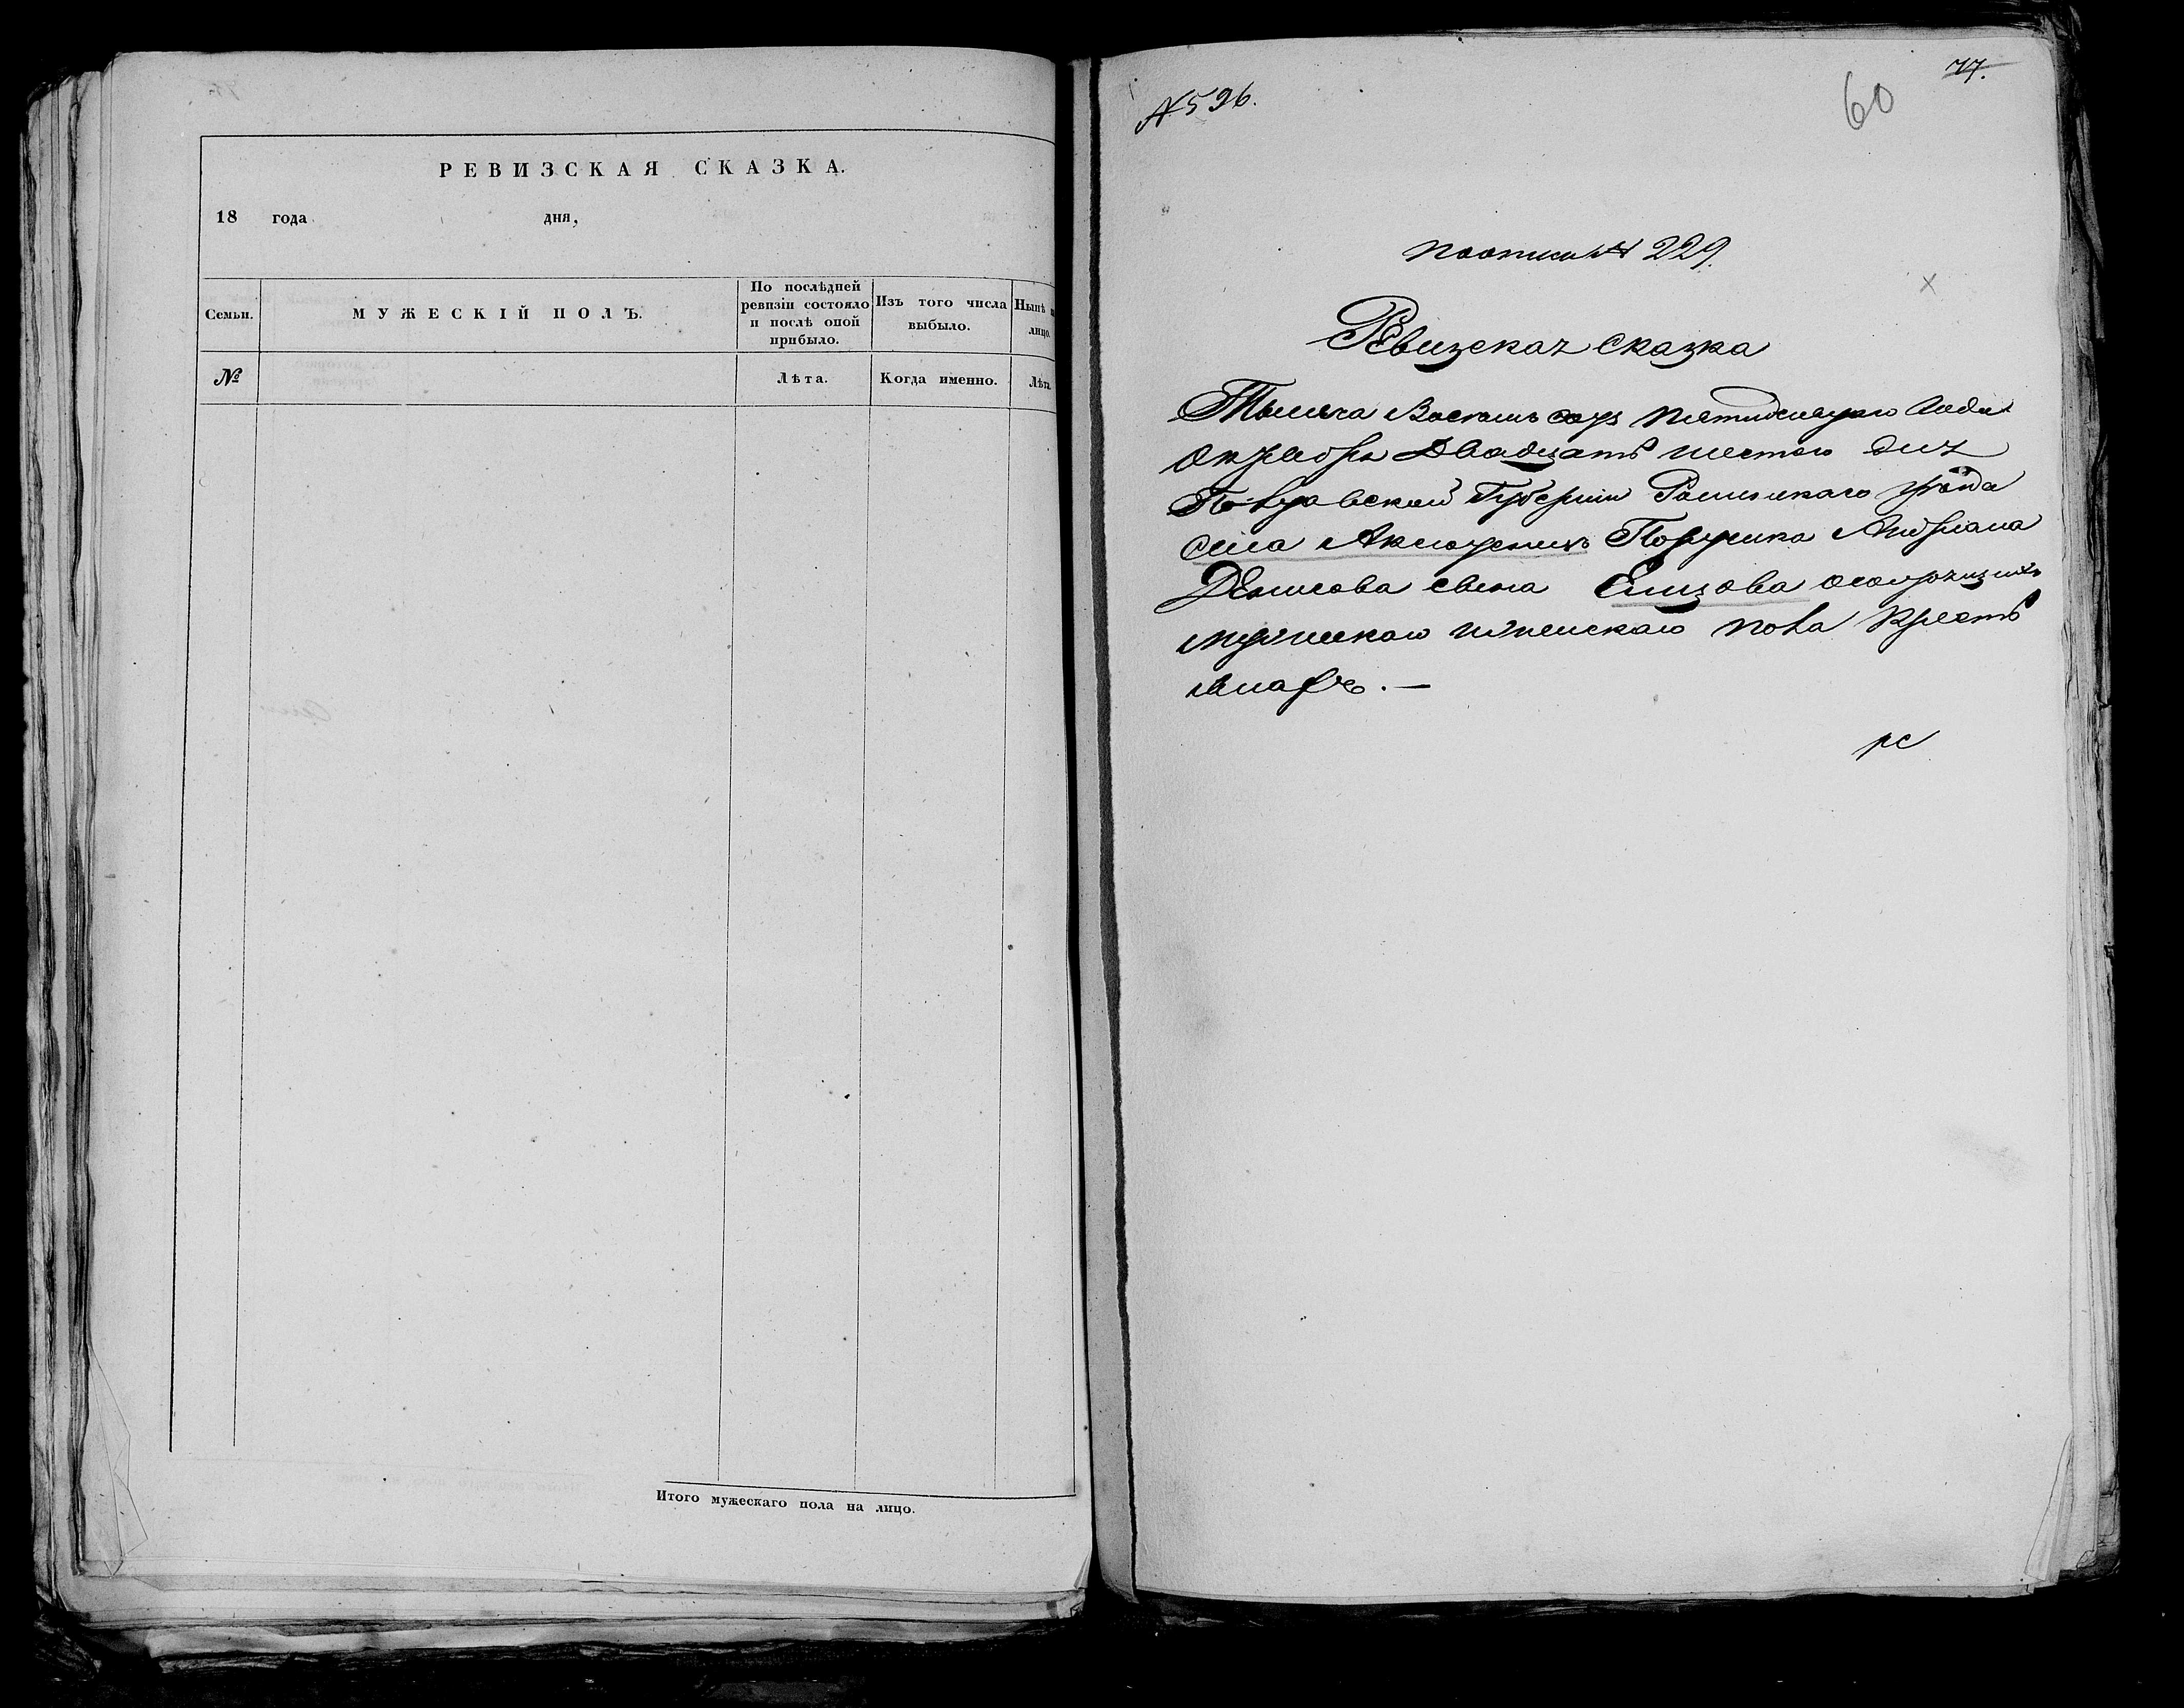 РЕВИЗСКАЯ СКАЗКА.
18 года дня,
Семьи. МУЖЕСКІЙ ПОЛЪ. По послѣдней ревизіи состояло и послѣ оной прибыло. Изъ того числа выбыло. Нынѣ лицо.
№ Лѣта. Когда именно. Лѣта.
Итого мужескаго пола на лицо.
№ 596.
60
77.
по описи № 229.
Ревизская сказка
Тысяча Восемь сотъ пятидесятаго Года
Октября Двадцать шестого дня
Полтавской Губерніи Роменскаго уѣзда
села Аксютенцъ Порутчика Андріана
Денисова сына Елизова о состоящихъ
мужеска и женскаго пола кресть
янахъ. —
рс